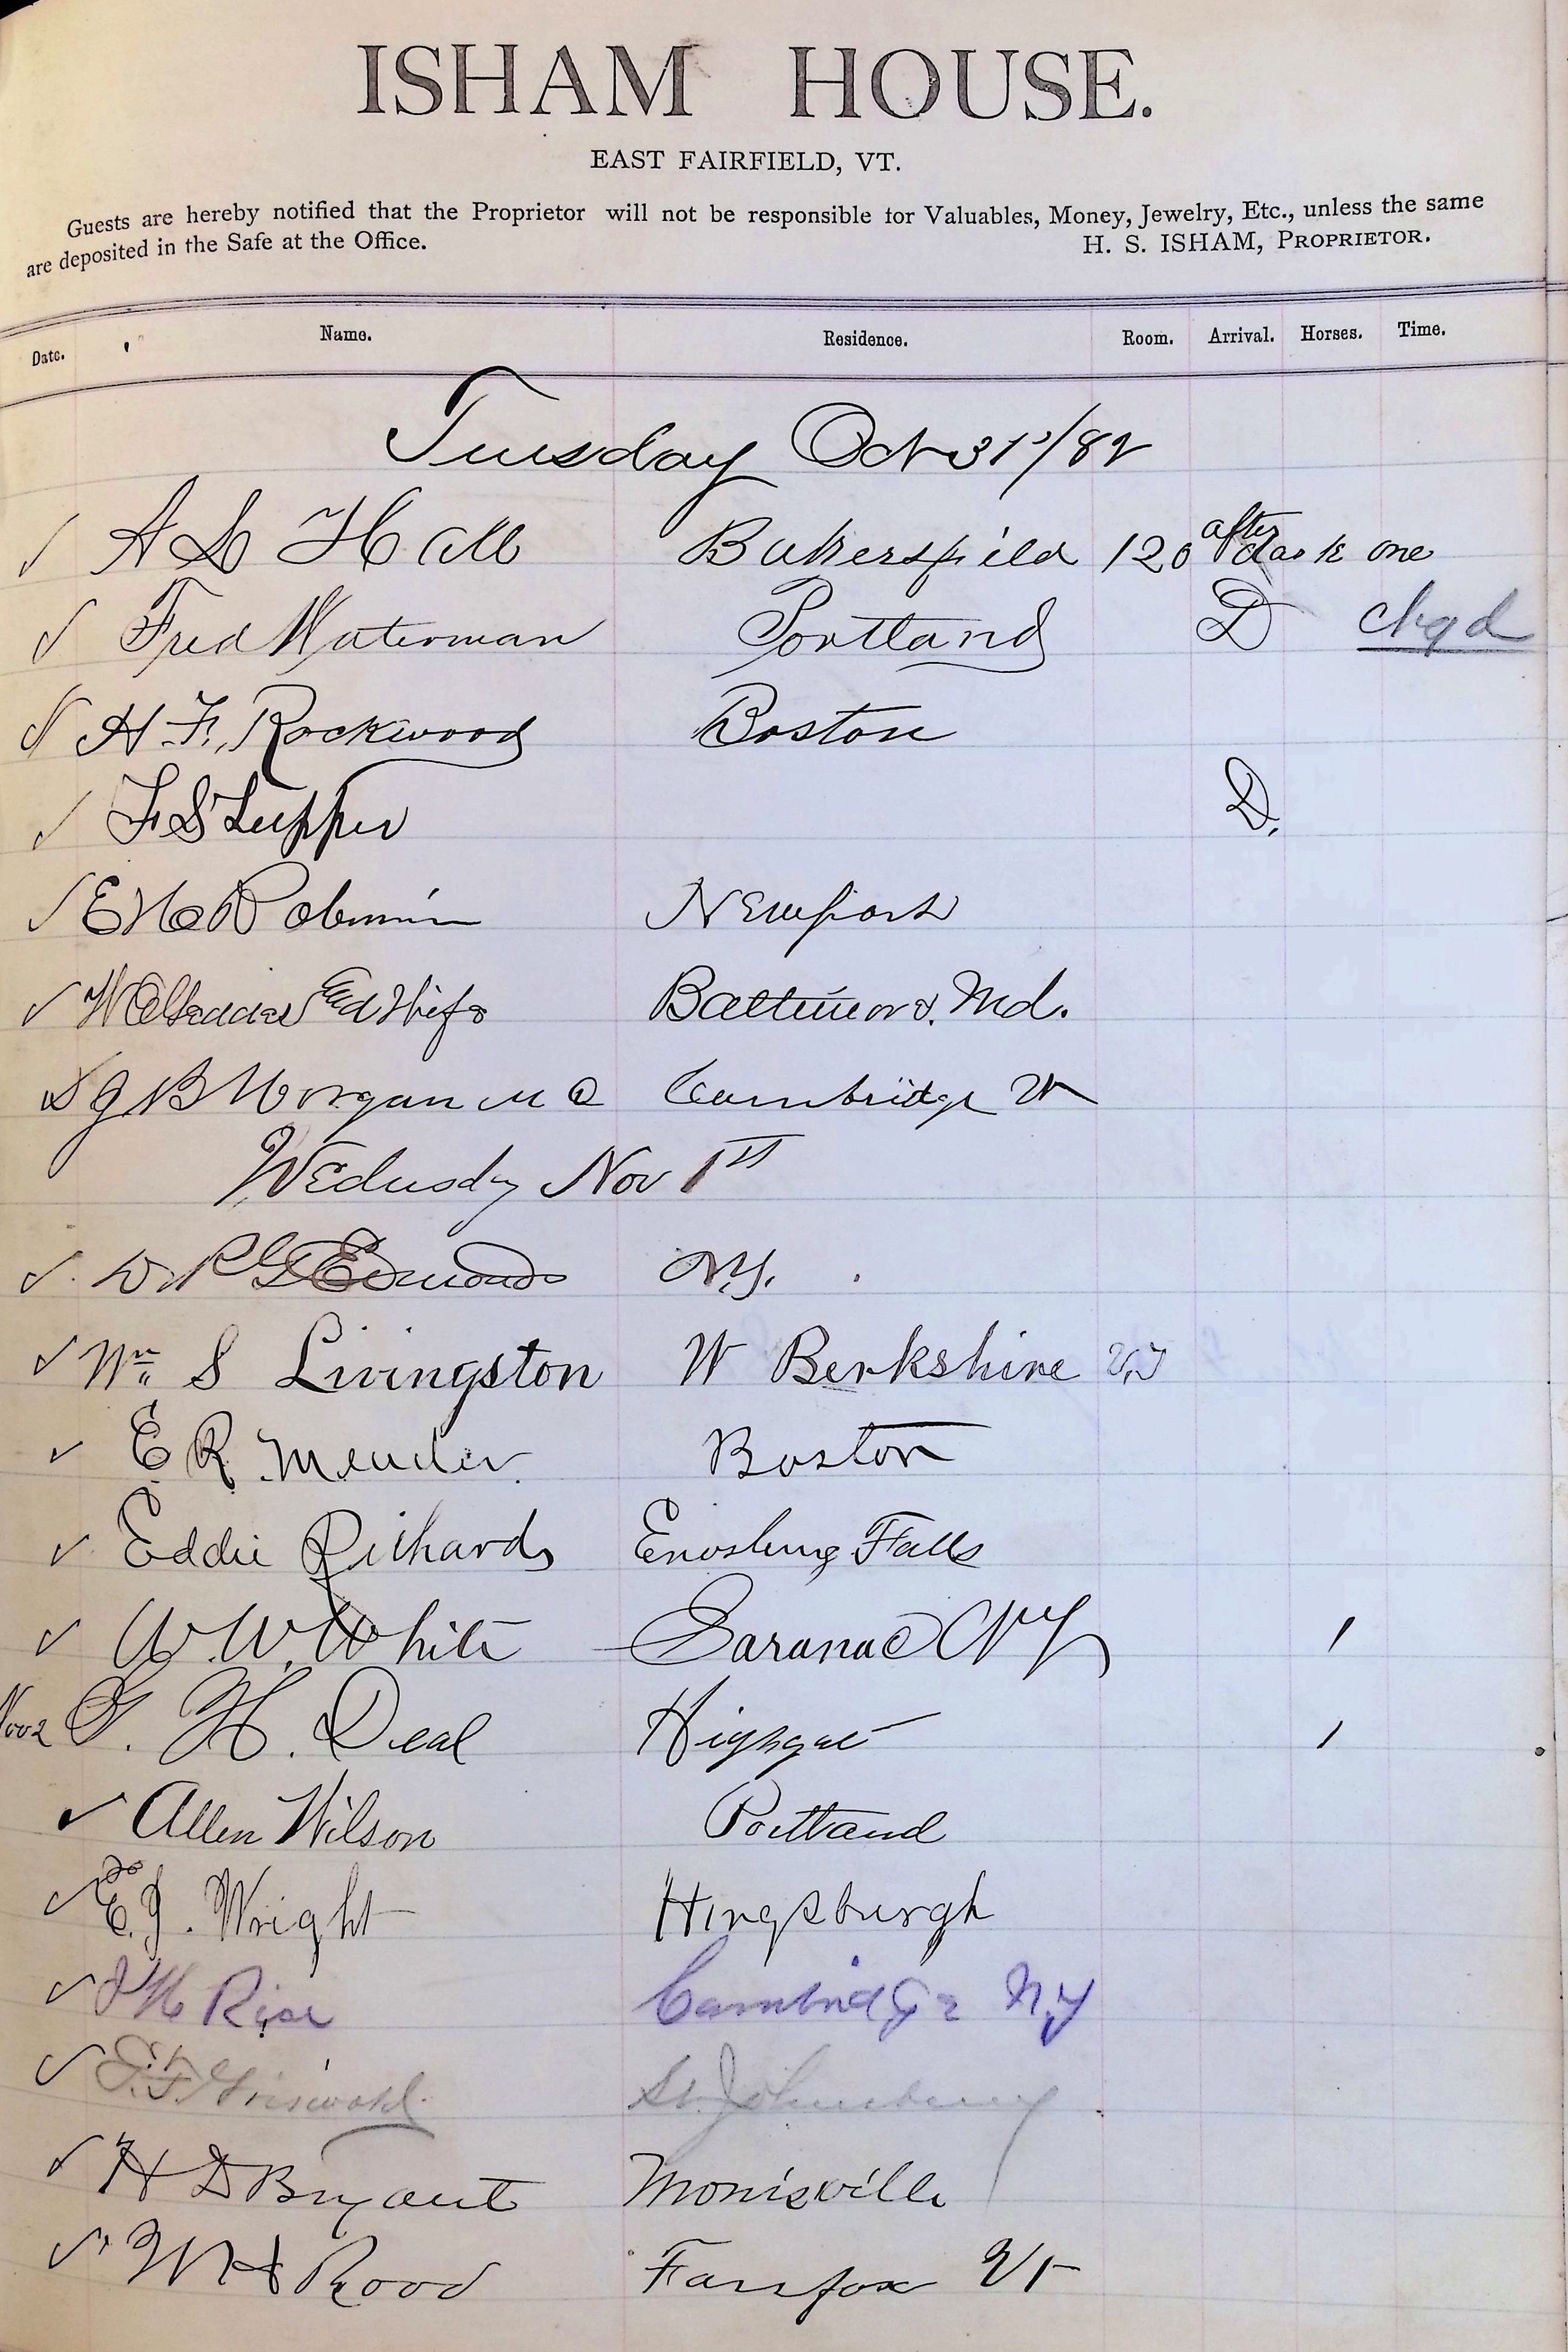 ISHAM HOUSE.
EAST FAIRFIELD, VT.
Guests are hereby notified that the Proprietor will not be responsible for Valuables, Money, Jewelry, Etc., unless the same
are deposited in the Safe at the Office. H. S. ISHAM, PROPRIETOR.
Date. Name. Residence. Room. Arrival. Horses. Time.
Tuesday Oct 31st/82
✓ A S Hall Bakersfield 120 after dark one
✓ Fred Waterman Portland D chgd
✓ H. F. Rockwood Boston
✓ F S Tupper D.
✓ E H Robinson Newport
✓ and Wife Baltimore. Md.
✓ J B Morgan M D Cambridge Vt
Wednesday Nov 1st
✓ Edmonds N.Y.
✓ Wm S Livingston W Berkshire V.T
✓ E R Meader Boston
✓ Eddie Richards Enosburg Falls
✓ W. W. White Saranac N Y /
Nov 2 G. H. Deal Highgate /
✓ Allen Wilson Portland
✓ E. J. Wright Hinesburgh
✓ J H Rice Cambridge N.Y
✓ Griswold St. Johnsbury
✓ H D Bryant Morrisville
✓ W H Rood Fairfax Vt